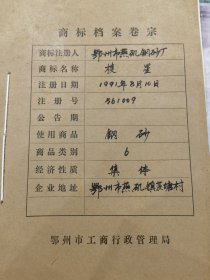 商标档案卷宗
商标注册人 鄂州市燕矶钢砂厂
商标名称 楚星
注册日期 1991年8月10日
注册号 561009
公告期
使用商品 钢砂
商品类别 6
经济性质 集体
企业地址 鄂州市燕矶镇芦塘村
鄂州市工商行政管理局